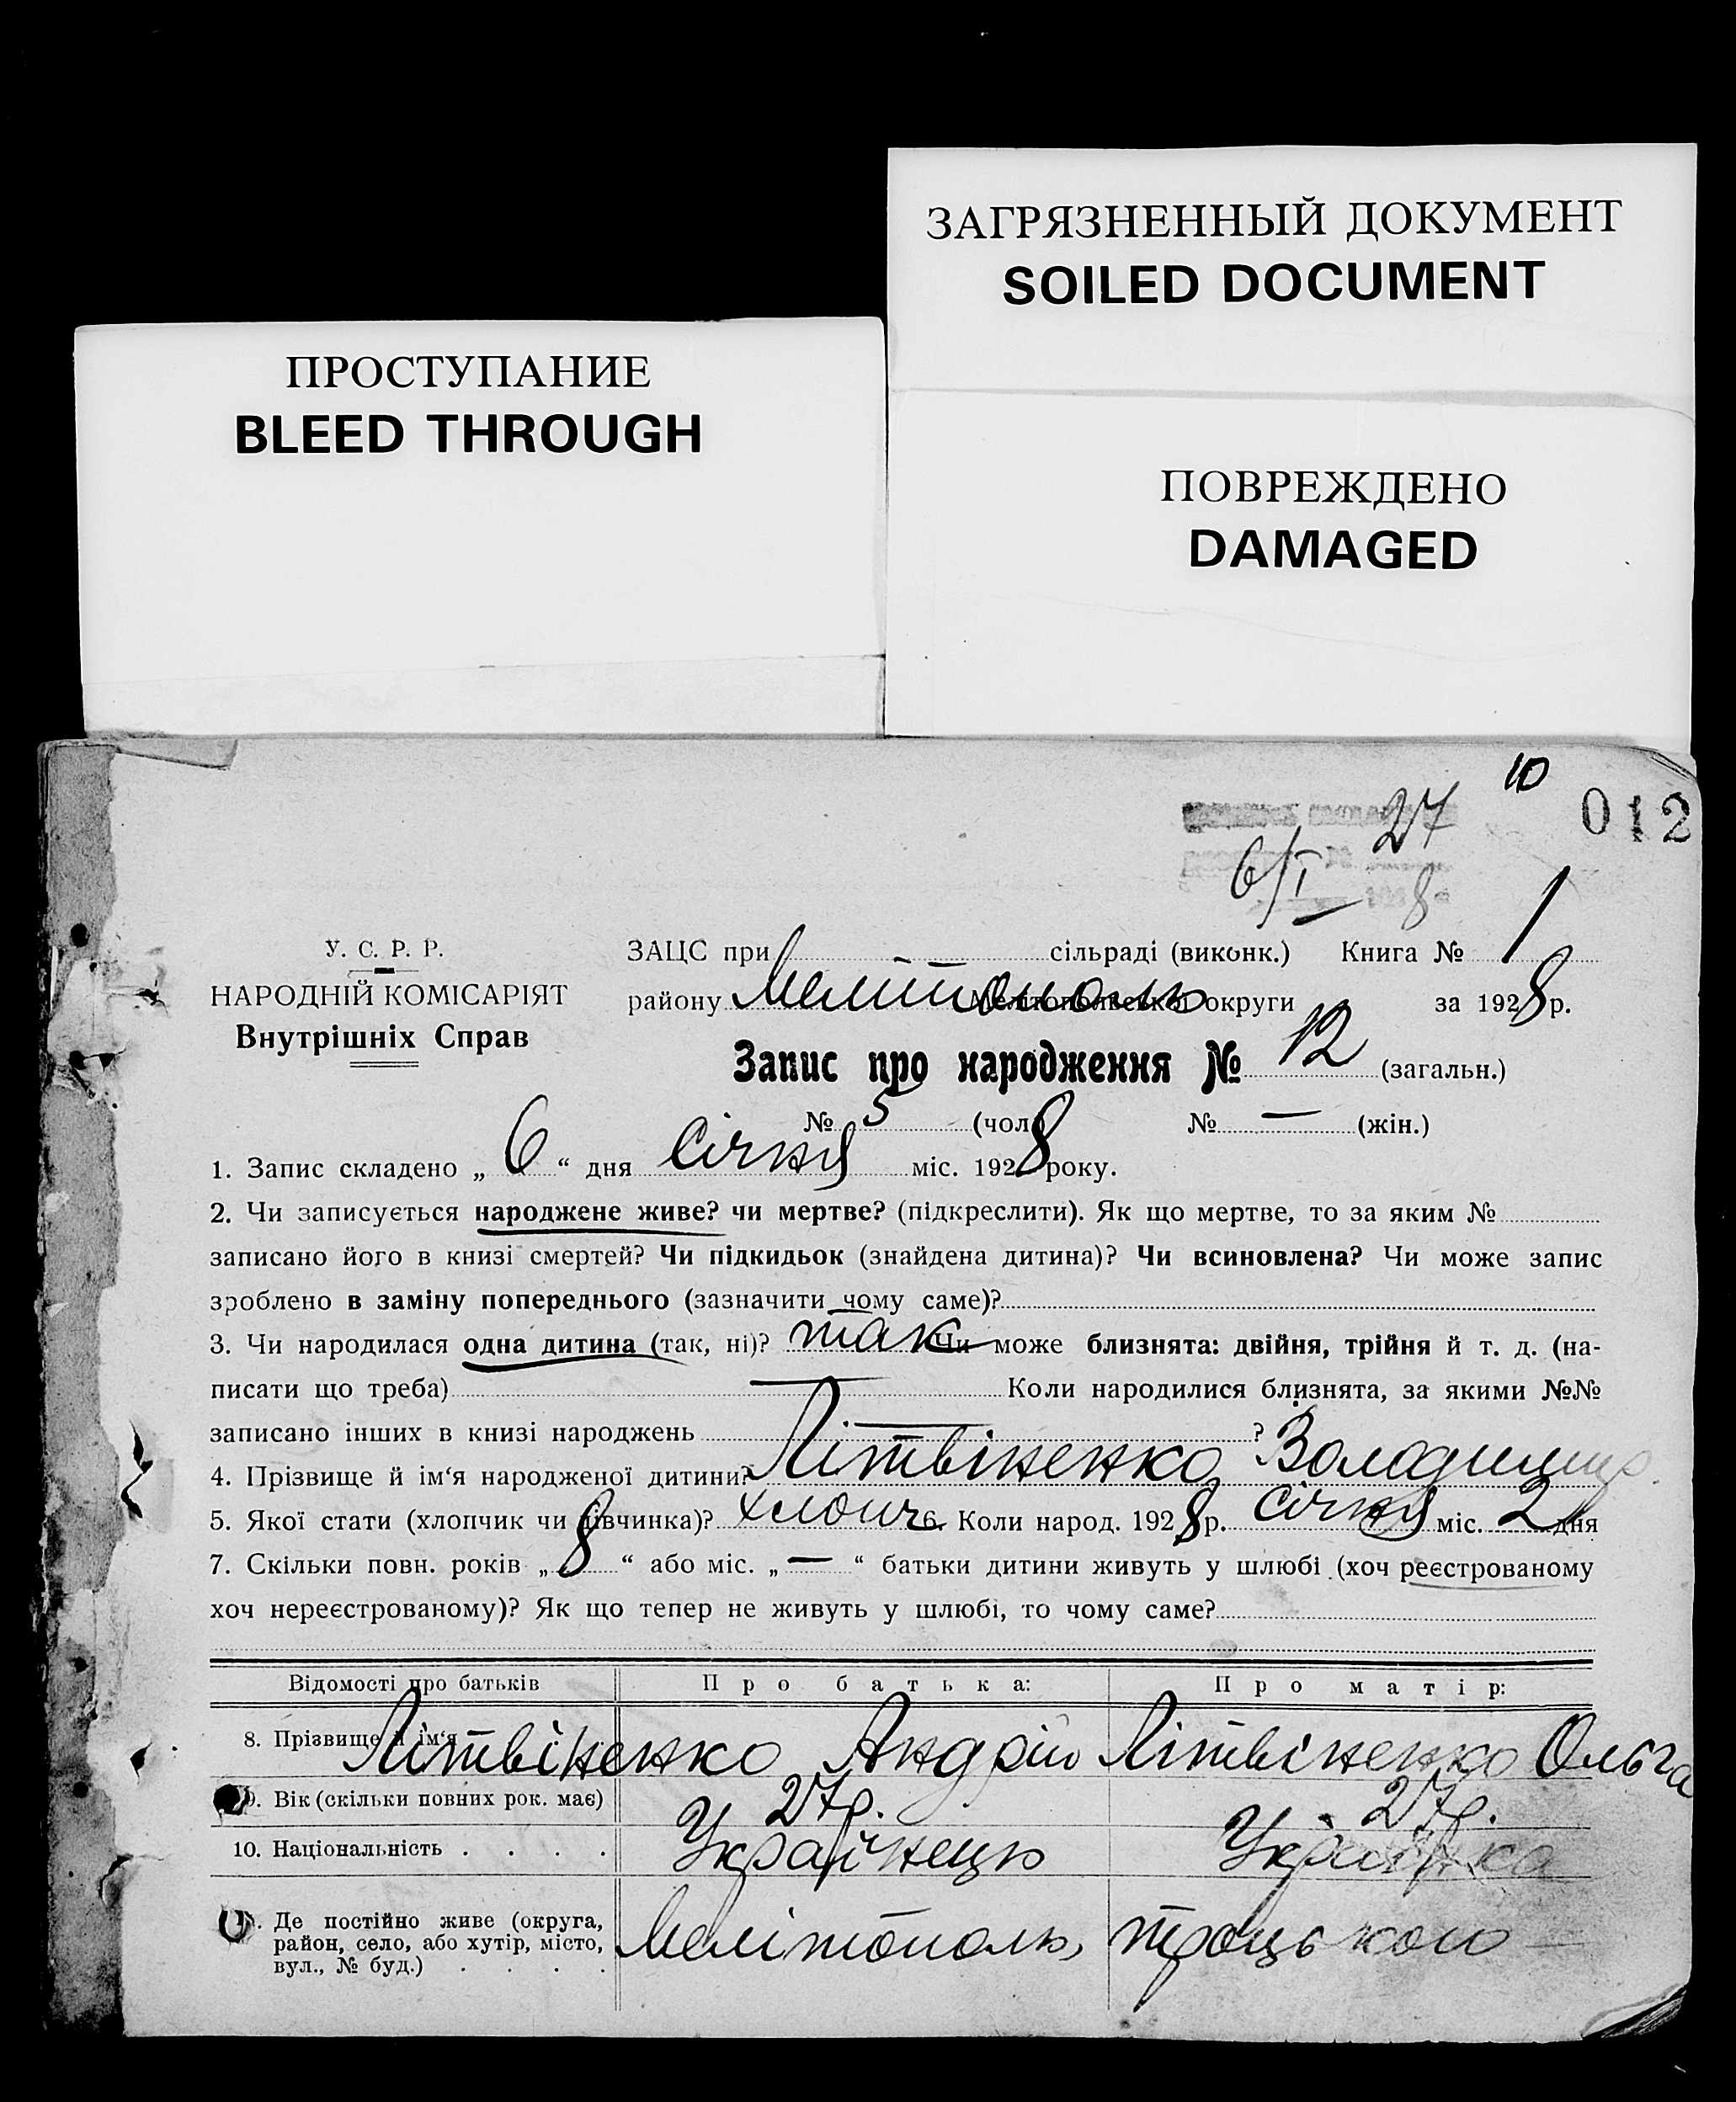 ЗАГРЯЗНЕННЫЙ ДОКУМЕНТ
SOILED DOCUMENT
ПРОСТУПАНИЕ
BLEED THROUGH
ПОВРЕЖДЕНО
DAMAGED
10
27
012
6/I 8
У. С. Р. Р.
НАРОДНІЙ КОМІСАРІЯТ
Внутрішніх Справ
ЗАЦС при сільраді (виконк.) Книга № 1
району Мелітополь Мелітопольської округи за 1928 р.
Запис про народження № 12 (загальн.)
№ 5 (чол.) № — (жін.)
1. Запис складено „ 6 “ дня січня міс. 1928 року.
2. Чи записується народжене живе? чи мертве? (підкреслити). Як що мертве, то за яким №
записано його в книзі смертей? Чи підкидьок (знайдена дитина)? Чи всиновлена? Чи може запис
зроблено в заміну попереднього (зазначити чому саме)?
3. Чи народилася одна дитина (так, ні)? так Чи може близнята: двійня, трійня й т. д. (на-
писати що треба) — Коли народилися близнята, за якими №№
записано інших в книзі народжень — ?
4. Прізвище й ім‘я народженої дитини? Літвіненко Володимир
5. Якої стати (хлопчик чи дівчинка)? хлопч 6. Коли народ. 1928 р. січня міс. 2 дня
7. Скільки повн. років „ 8 “ або міс. „ — “ батьки дитини живуть у шлюбі (хоч реєстрованому
хоч нереєстрованому)? Як що тепер не живуть у шлюбі, то чому саме?
Відомості про батьків Про батька: Про матір:
8. Прізвище й ім‘я Літвіненко Андрій Літвіненко Ольга
9. Вік (скільки повних рок. має) 27 р. 27 р.
10. Національність . . . . Українець Українка
Де постійно живе (округа,
район, село, або хутір, місто,
вул., № буд.) . . . . Мелітополь, троцького